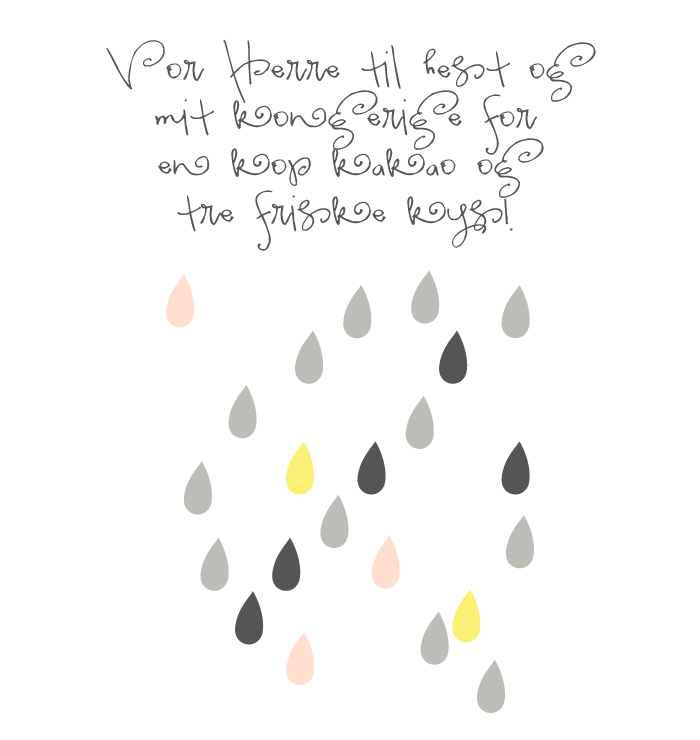 Vor Herre til hest og
mit kongerige for
en kop kakao og
tre friske kys!